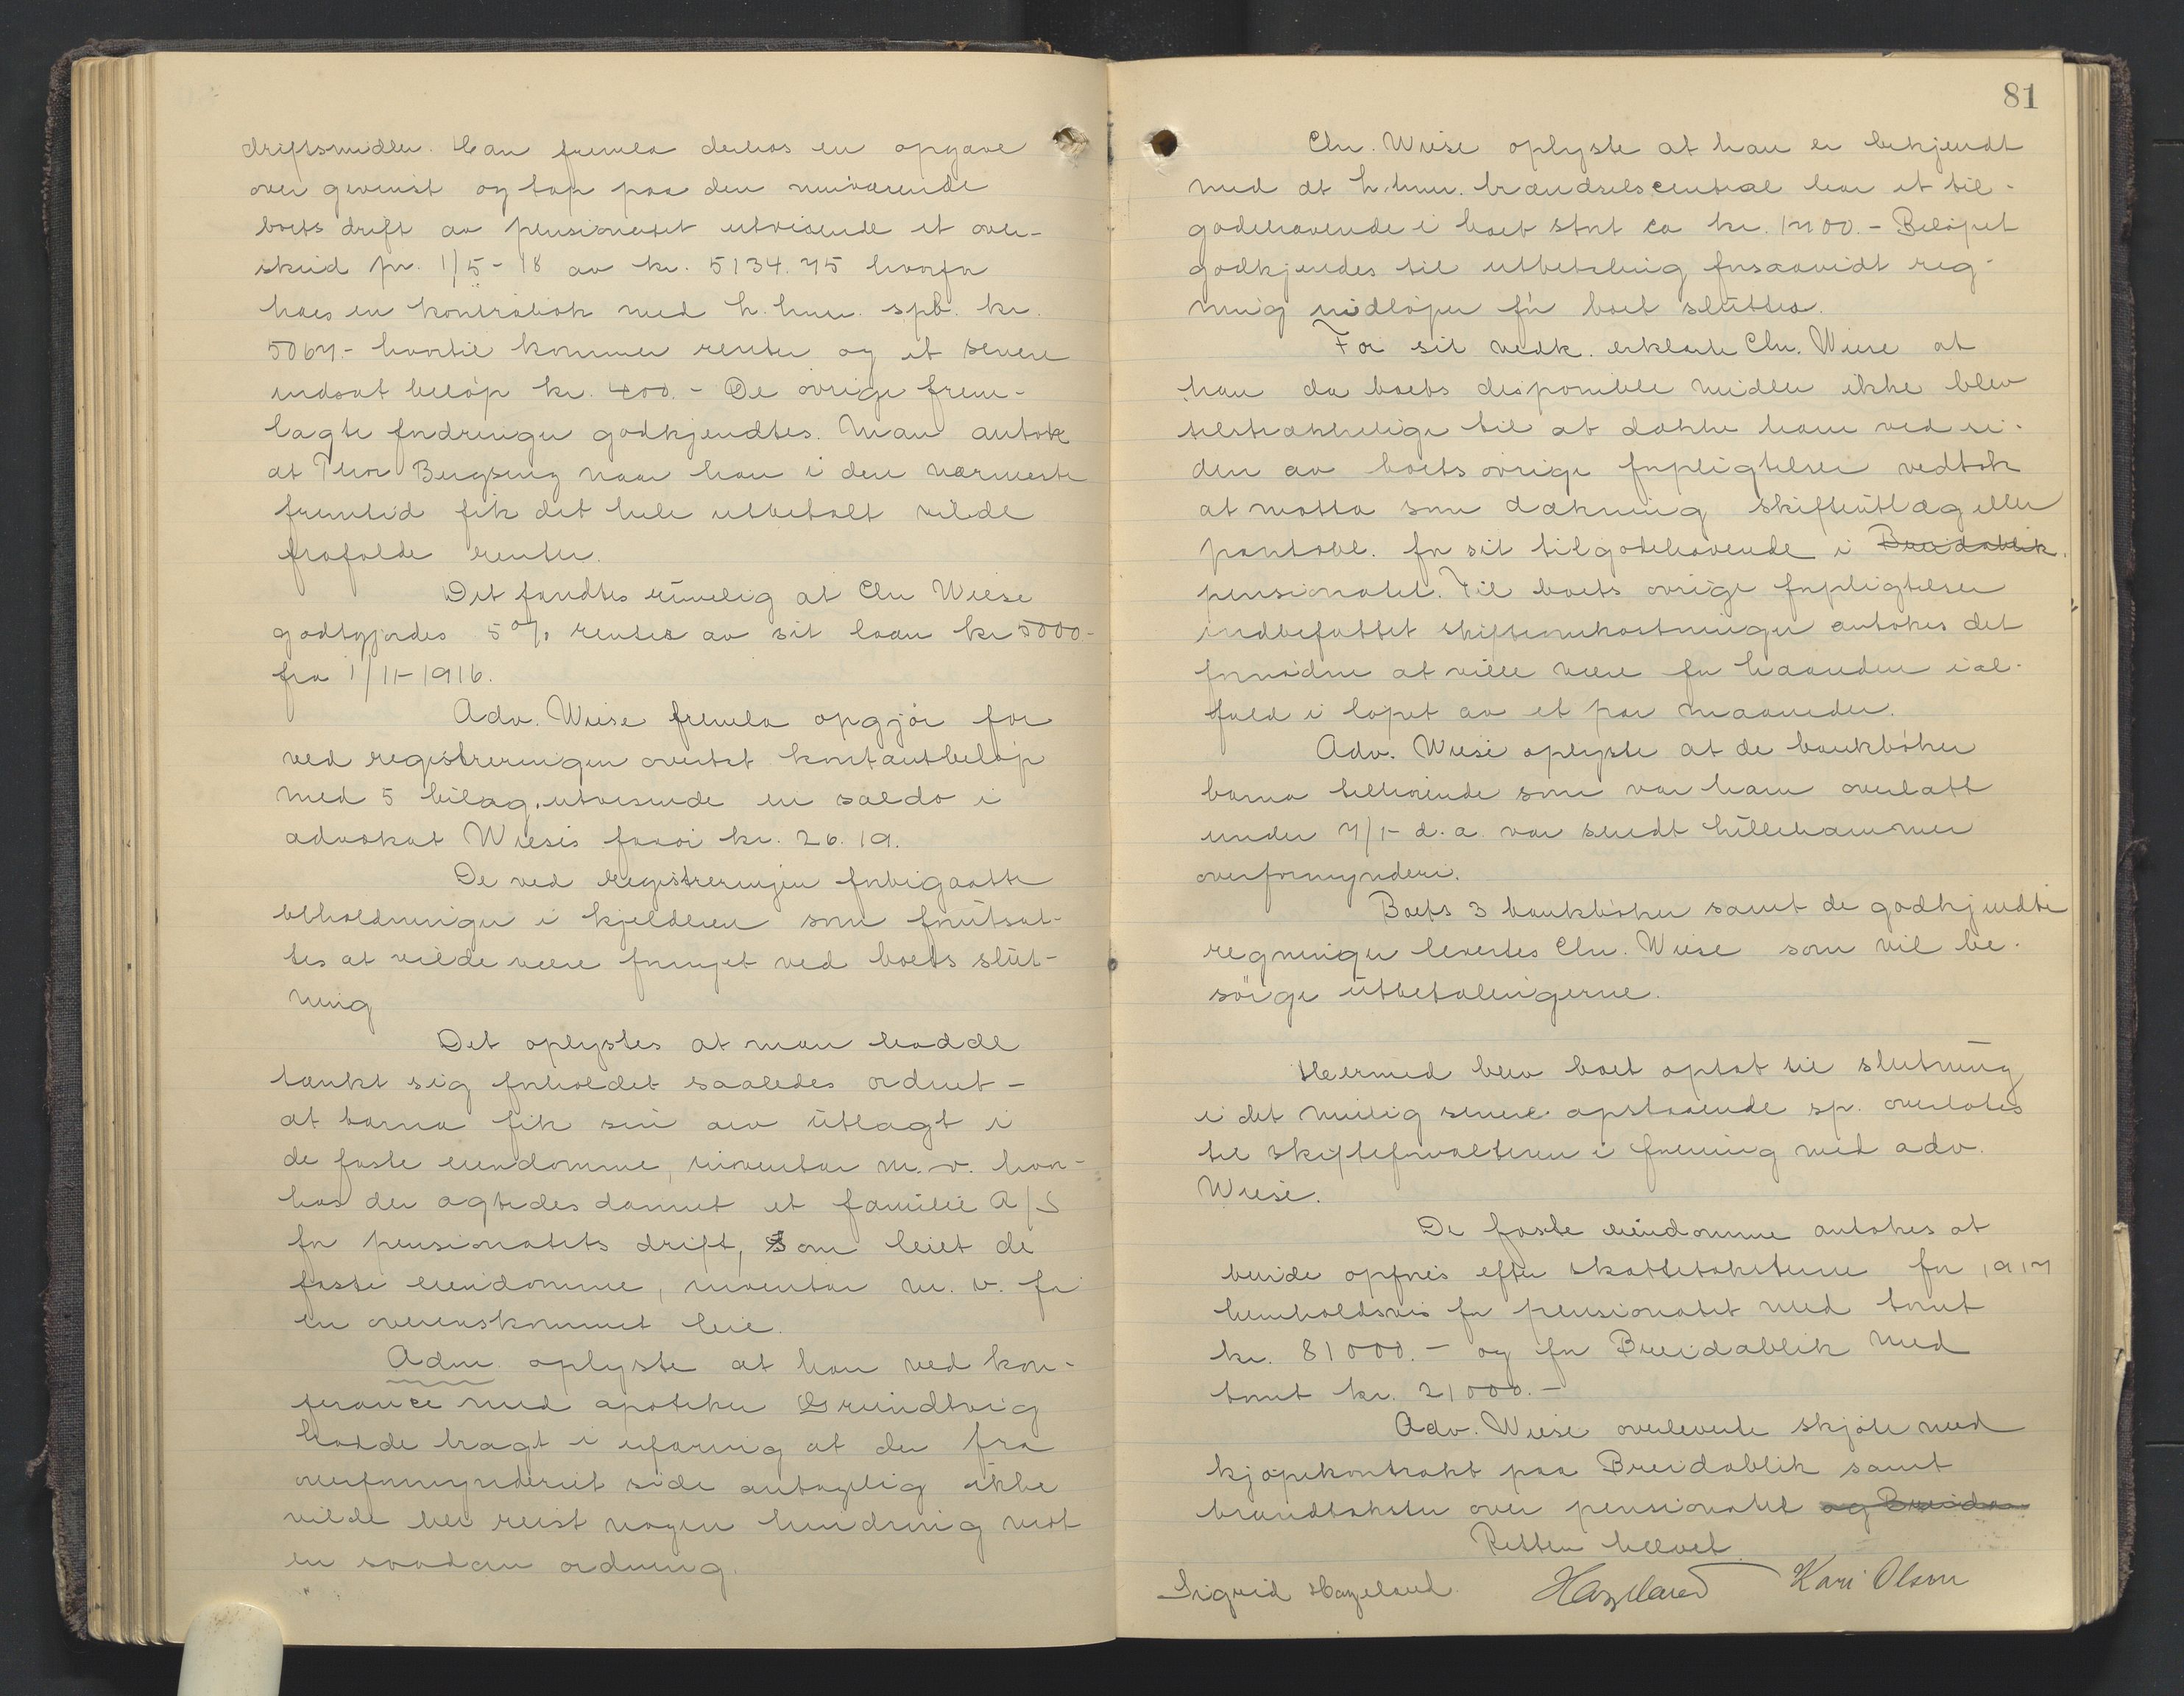 driftsmidler. Han fremla derhos en opgave
over gevinst og tap paa den nuværende
boets drift av pensionatet utvisende et over-
skud pr. 1/5-18 av kr. 5134.75 hvorfor
haes en kontrabok med L.hmr. spb. kr.
5067.- hvortil kommer renter og et senere
indsat beløp kr. 400.- De øvrige frem-
lagte fordringer godkjendtes. Man antok
at Thor Bergseng naar han i den nærmeste
fremtid fik det hele utbetalt vilde
frafalde renter.
Det fandtes rimelig at Chr Wiese
godtgjordes 5% renter av sit laan kr 5000-
fra 1/11-1916.
Adv. Wiese fremla opgjør for
ved registreringen overtat kontantbeløp
med 5 bilag, utvisende en saldo i
advokat Wieses favør kr. 26.19.
De ved registreringen forbigaatte
beholdninger i kjelderen som forutsat-
tes at vilde være fornyet ved boets slut-
ning
Det oplystes at man hadde
tænkt sig forholdet saaledes ordnet -
at barna fik sin arv utlagt i
de faste eiendomme, inventar m.v. hvor-
hos der agtedes dannet et familie A/S
for pensionatets drift, som leiet de
faste eiendomme, inventar m.v. for
en overenskommet leie.
Adm. oplyste at han ved kon-
ferance med apoteker Grundtvig
hadde bragt i erfaring at der fra
overformynderiet side antagelig ikke
vilde bli reist nogen hindring mot
en saadan ordning.
81
Chr. Wiese oplyste at han er bekjendt
med at L.hmr. brændselscentral har et til-
godehavende i boet stort ca kr. 1700.- Beløpet
godkjendes til utbetaling forsaavidt reg-
ning indløper før boet sluttes.
For sit vedk. erklærte Chr. Wiese at
han da boets disponible midler ikke blev
tilstrækkelige til at dække ham ved si-
den av boets øvrige forpligtelser vedtok
at motta som dækning skifteutlæg eller
pantobl. for sit tilgodehavende i Breidablik.
pensionatet. Til boets øvrige forpligtelser
indbefattet skifteomkostninger antokes det
fornødne at ville være for haanden ial-
fald i løpet av et par maaneder.
Adv. Wiese oplyste at de bankbøker
barna tilhørende som var ham overlatt
under 7/1- d.a. var sendt Lillehammer
overformynderi.
Boets 3 bankbøker samt de godkjendte
regninger levertes Chr. Wiese som vil be-
sørge utbetalingerne.
Hermed blev boet optat til slutning
i det mulig senere opstaaende sp. overlates
til skifteforvalteren i forening med adv.
Wiese.
De faste eiendomme antokes at
burde opføres efter skattetaksterne for 1917
henholdsvis for pensionatet med tomt
kr. 81000.- og for Breidablik med
tomt kr. 21000.-
Adv. Wiese overleverte skjøte med
kjøpekontrakt paa Breidablik samt
brandtakster over pensionatet og Breida
Retten hævet.
Sigrid Hazeland. Hazeland Kari Olsen